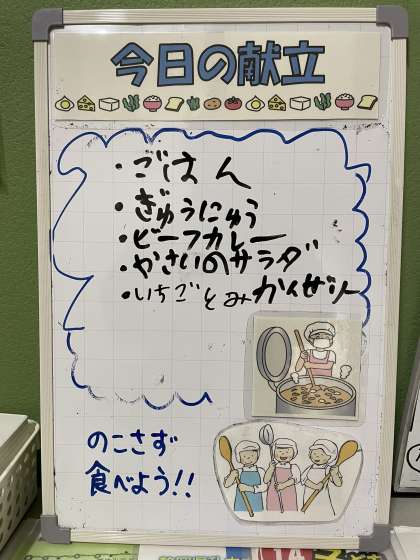 今日の献立
・ごはん
・ぎゅうにゅう
・ビーフカレー
・やさいのサラダ
・いちごとみかんゼリー
のこさず
食べよう!!